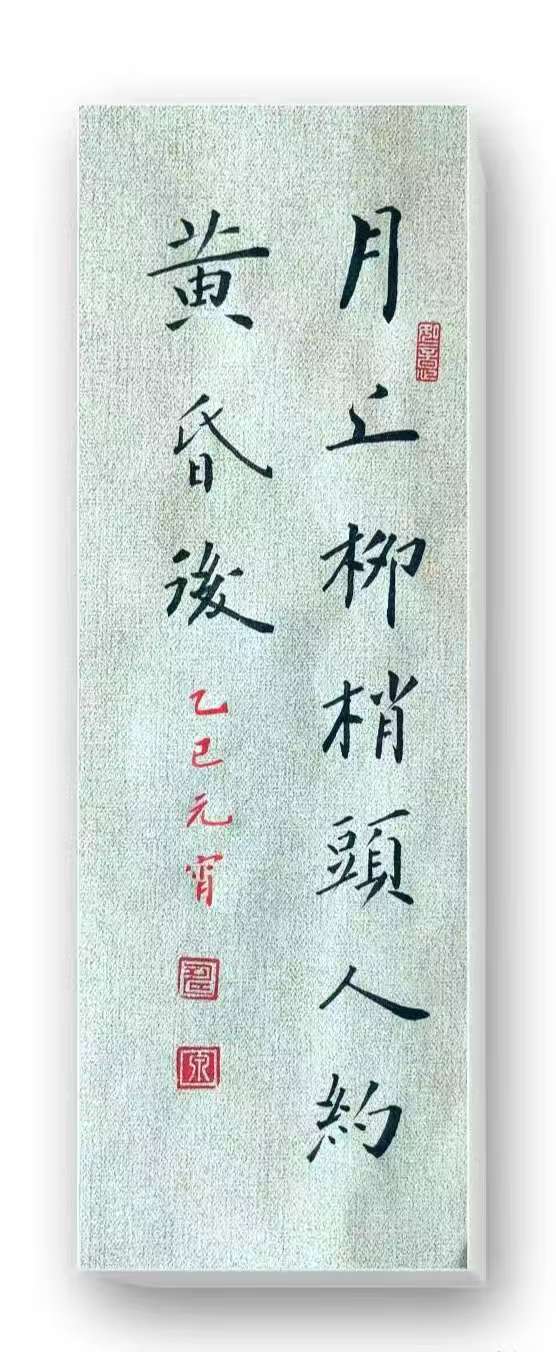 月上柳梢頭人約
黃昏後
乙巳元宵